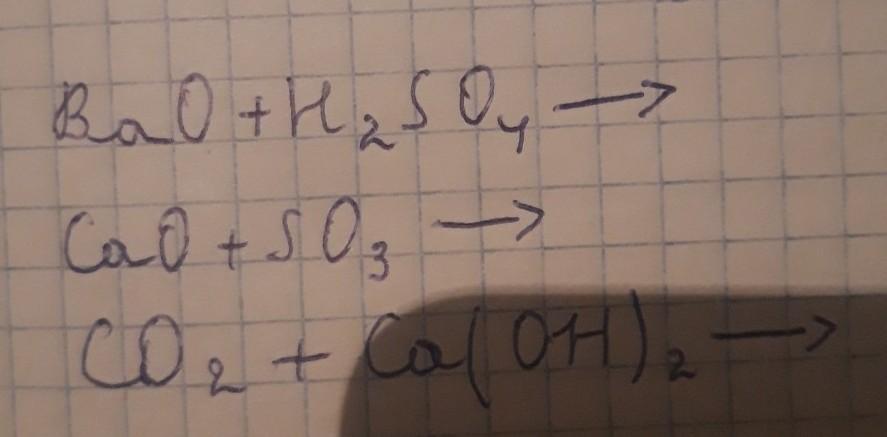 BaO + H₂SO₄ →
CaO + SO₃ →
CO₂ + Ca(OH)₂ →